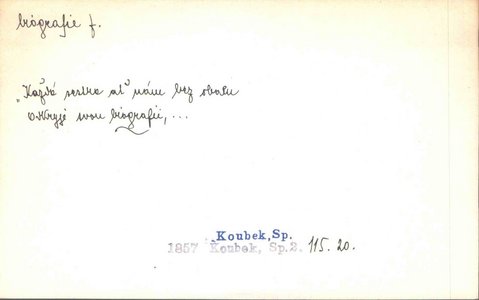 biografie f.
„Každá sestra ať nám bez obalu
odkryje svou biografii, ...
Koubek, Sp.
1857 Koubek, Sp.2. 115. 20.